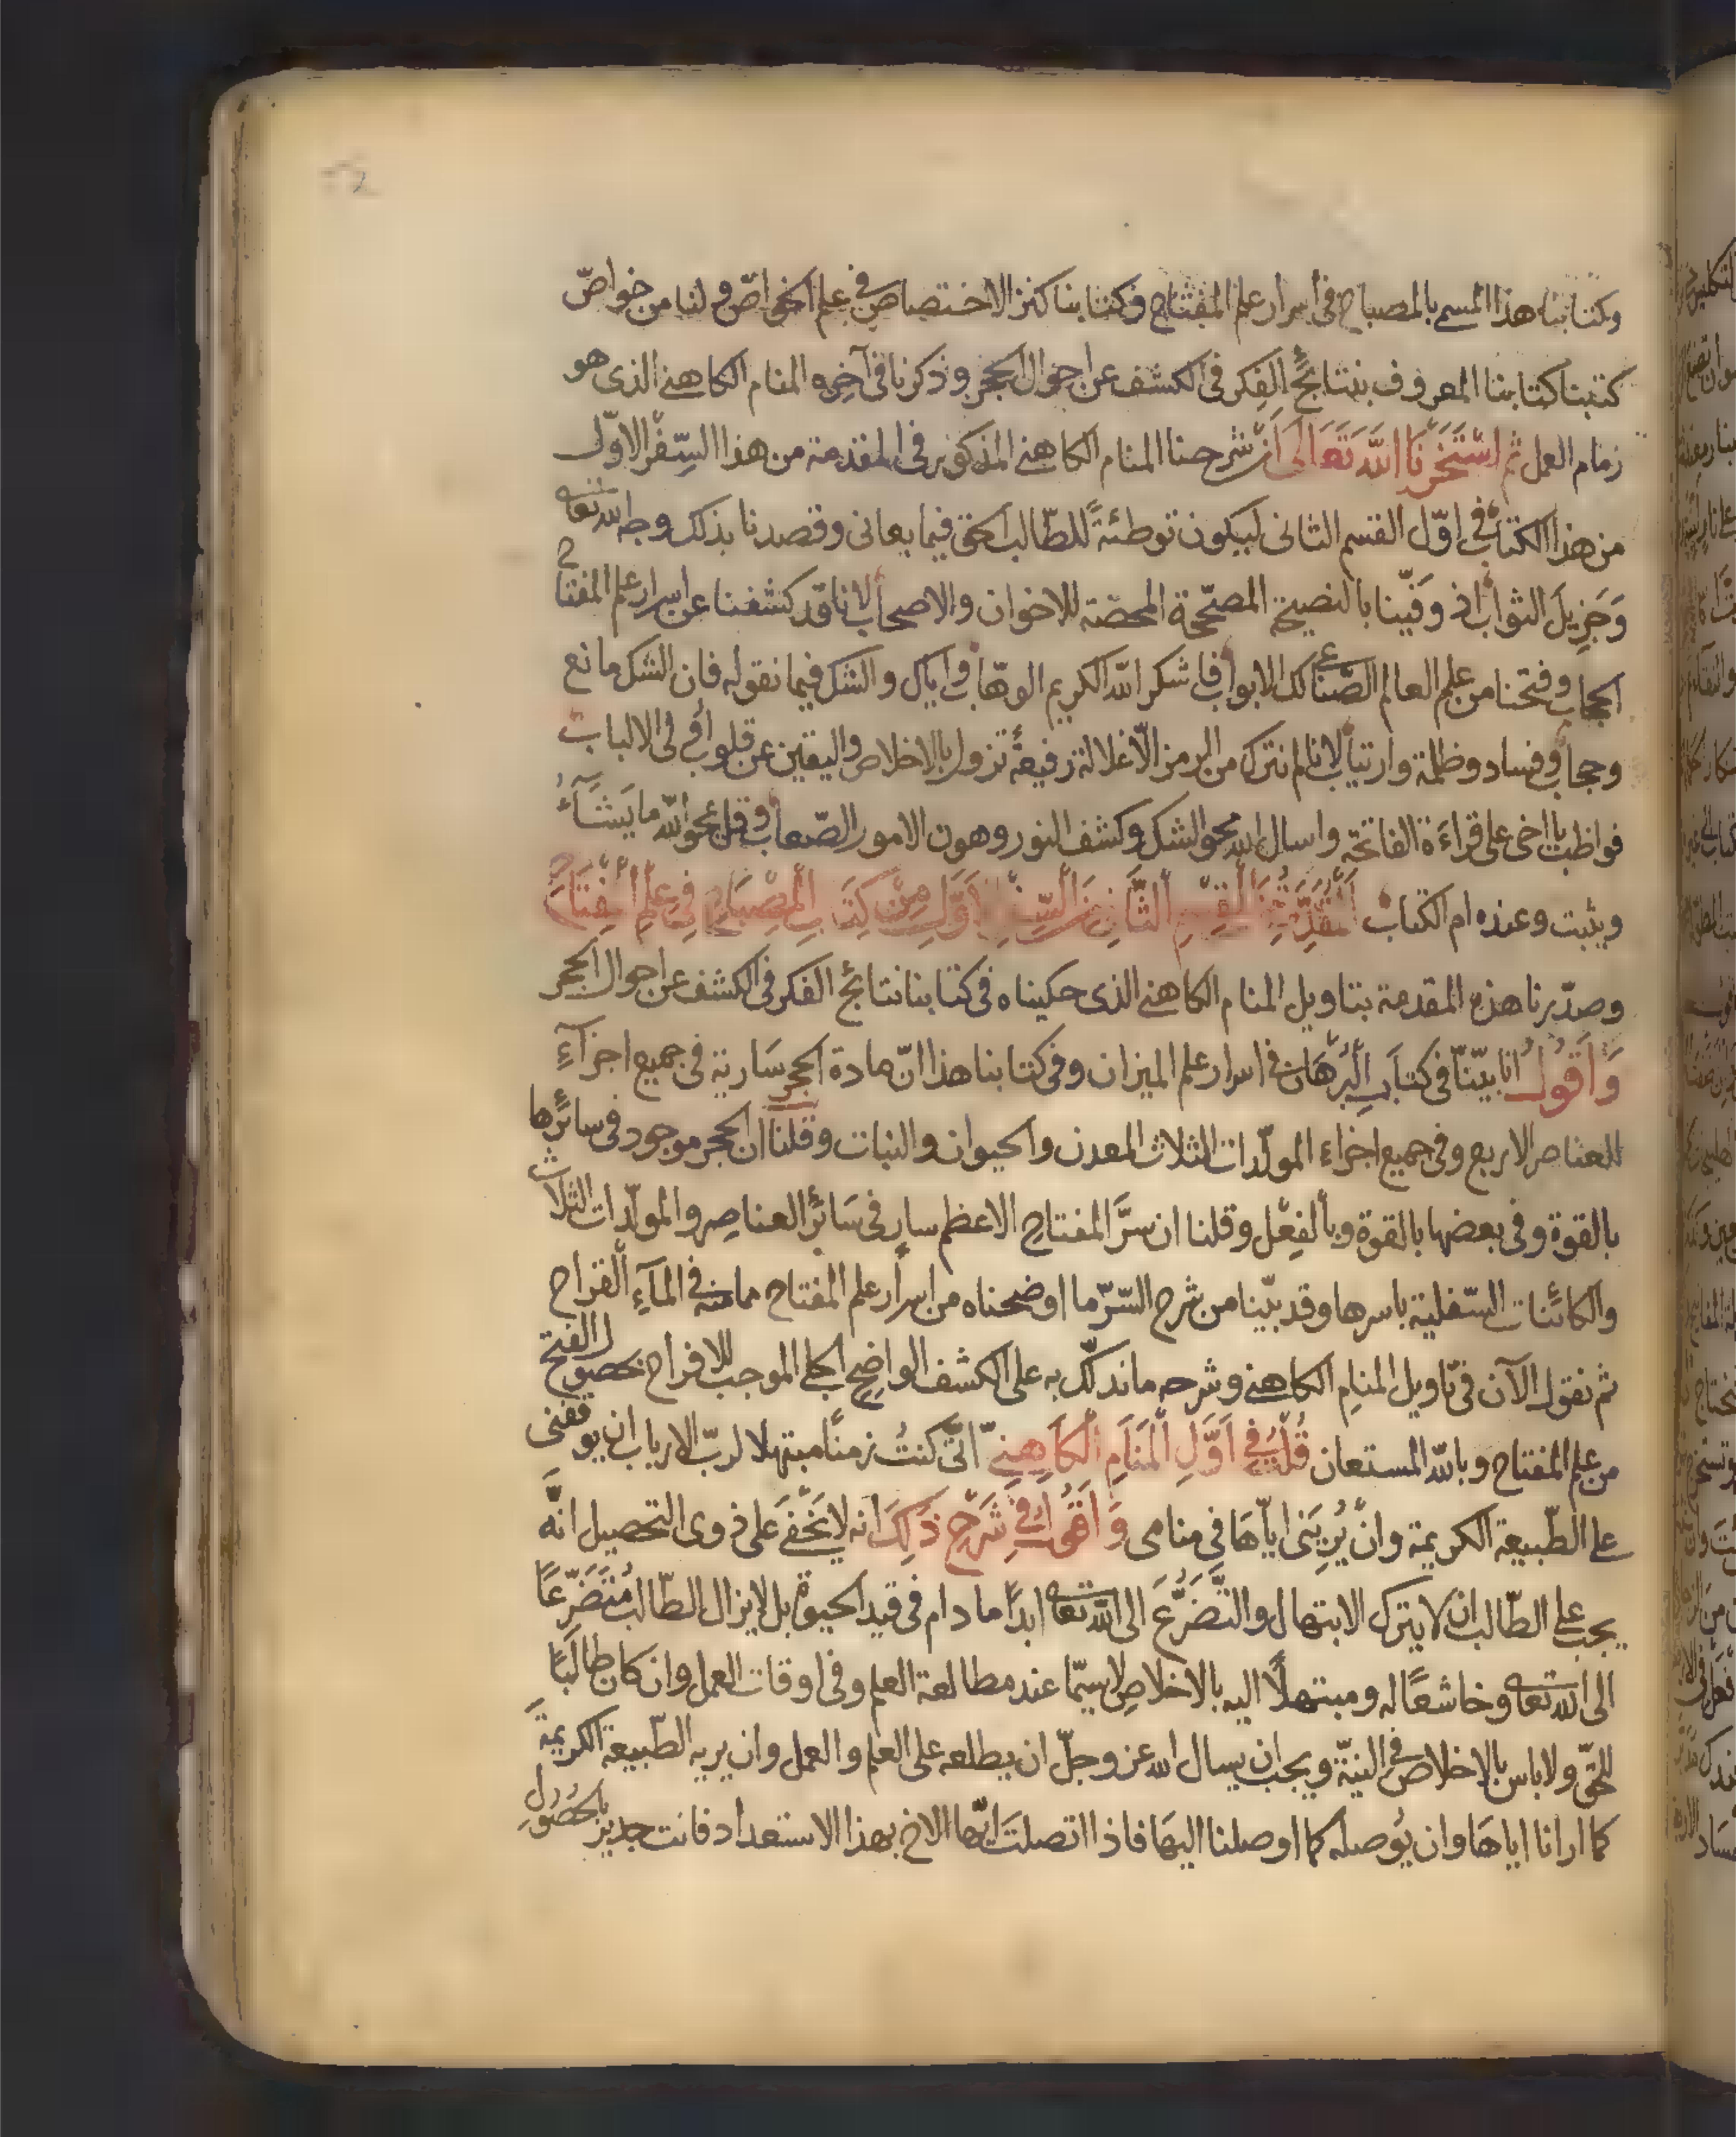 وكتابنا هذا المسمى بالمصباح فى اسرار علم المفتاح وكتابنا كنز الاختصاص فى علم الخواص ولنا من خواصّ
كتبنا كتابنا المعروف بنتائج الفكر فى الكشف عن احوال الحجر وذكرنا فى آخره المنام الكاهنى الذى هو
زمام العمل ثم استخرنا الله تعالى ان شرحنا المنام الكاهنى المذكور فى المقدمة من هذا السِّفر الاوّل
من هذا الكتاب فى اوّل القسم الثانى ليكون توطئةً للطّالب الحق فيما يعانى وقصدنا بذلك وجه الله تعالى
وَجَزِيلَ الثواب اذ وفّينا بالنصيحة المصحّحة المحضة للاخوان والاصحاب لانا قد كشفنا عن اسرار علم المفتاح
الحجاب وفتحنا من علم العالم الصّناعى لك الابواب فاشكر الله الكريم الوهّاب واياك والشك فيما نقوله فان الشك مانع
وحجاب وفساد وظلمة وارتياب لانا لم نترك من الرمز الّا غلالة رفيعةً تزول بالاخلاص واليقين عن قلوب اُولى الالباب
فواظب يااخى على قراءَة الفاتحة واسال الله محو الشك وكشف النور وهون الامور الصّعاب وقل يمحو الله ما يَشَآءُ
ويثبت وعنده ام الكتاب المقدّمة من القسم الثانى من السفر الاوّل من كتاب المصباح فى علم المفتاح
وصدّرنا هذه المقدمة بتاويل المنام الكاهنى الذى حكيناه فى كتابنا نتائج الفكر فى الكشف عن احوال الحجر
وَاَقُولُ انا بيّنّا فى كتاب البرهان فى اسرار علم الميزان وفى كتابنا هذا انّ مادة الحجر سَارية فى جميع اجزآءِ
العناصر الاربع وفى جميع اجزاء المولّدات الثلاث المعدن والحيوان والنبات وقلنا ان الحجر موجود فى سائرها
بالقوة وفى بعضها بالقوة وبالفِعْل وقلنا ان سرَّ المفتاحِ الاعظم سارٍ فى سَائر العناصِر والمولّدات الثلاث
والكائنات السّفلية باسرها وقد بيّنا من شرح السّرّ ما اوضحناه من اسرار علم المفتاح ممامنه فى المآءِ القراح
ثم نقول الآن فى تاويل المنام الكاهنى وشرحه ما ندلّك به على الكشف الواضح الجلى الموجب للافراح بحصول الفتح
من علم المفتاح وبالله المستعان قُلْتُ فى اَوَّلِ المَنَامِ الكَاهِنى انّى كنتُ زمنًا مبتهلا لربّ الارباب ان يوقفنى
على الطّبيعة الكريمة وانْ يُرِيَنى ايّاهَا فِى منامى وَاَقُولُ فِى شَرْحِ ذَلِكَ انه لا يَخْفَى عَلى ذوى التحصيل انَّه
يجب على الطّالب ان لا يترك الابتهال والتَّضَرُّعَ الى الله تعالى ابدًا ما دام فى قيد الحيوة بل لا يزال الطّالب مُتَضَرِّعًا
الى الله تعالى وخاشعًا له ومبتهلًا اليه بالاخلاصِ لاسيّما عند مطالعة العلم وفى اوقات العمل وان كان طالبًا
للحقّ ولاباس بالاخلاص فى النيّة ويجب ان يسال الله عز وجلّ ان يطلعه على العلم والعمل وان يريه الطّبيعة الكريمةَ
كما ارانا اياهَا وان يُوصله كما اوصلنا اليهَا فاذا اتصلتَ ايّها الاخ بهذا الاستعداد فانت جدير بالحُصُولِ